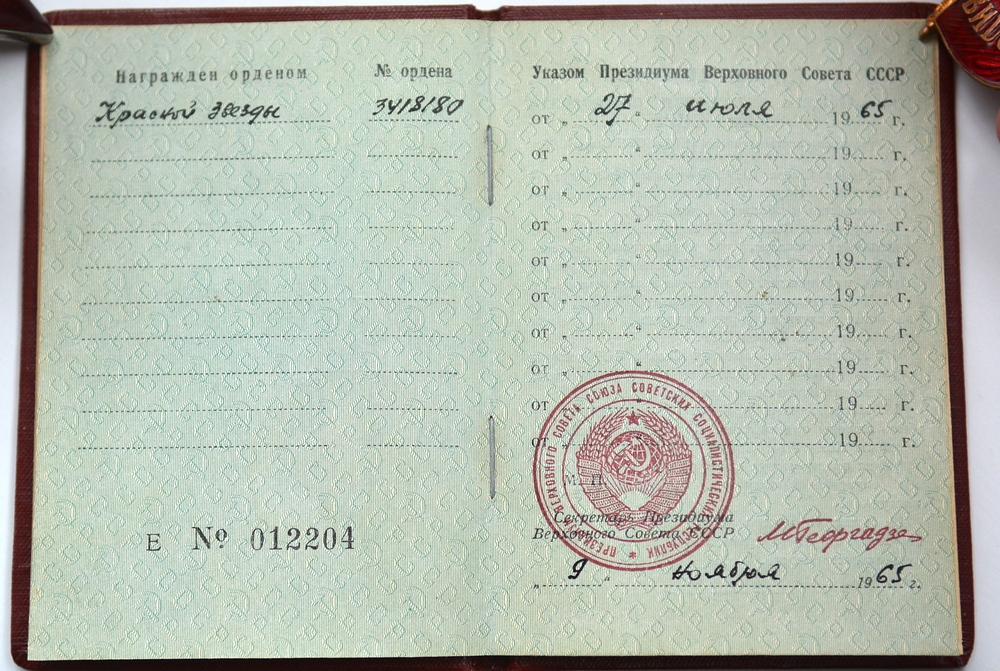 Награжден орденом
№ ордена
Красной Звезды
3418180
Е № 012204
Указом Президиума Верховного Совета СССР
от „ 27 “ июля 19 65 г.
от „ “ 19 г.
от „ “ 19 г.
от „ “ 19 г.
от „ “ 19 г.
от „ “ 19 г.
от „ “ 19 г.
от „ “ 19 г.
от „ “ 19 г.
от „ “ 19 г.
ПРЕЗИДИУМ ВЕРХОВНОГО СОВЕТА СОЮЗА СОВЕТСКИХ СОЦИАЛИСТИЧЕСКИХ РЕСПУБЛИК *
М. П.
Секретарь Президиума
Верховного Совета СССР
МГеоргадзе
„ 9 “ ноября 19 65 г.